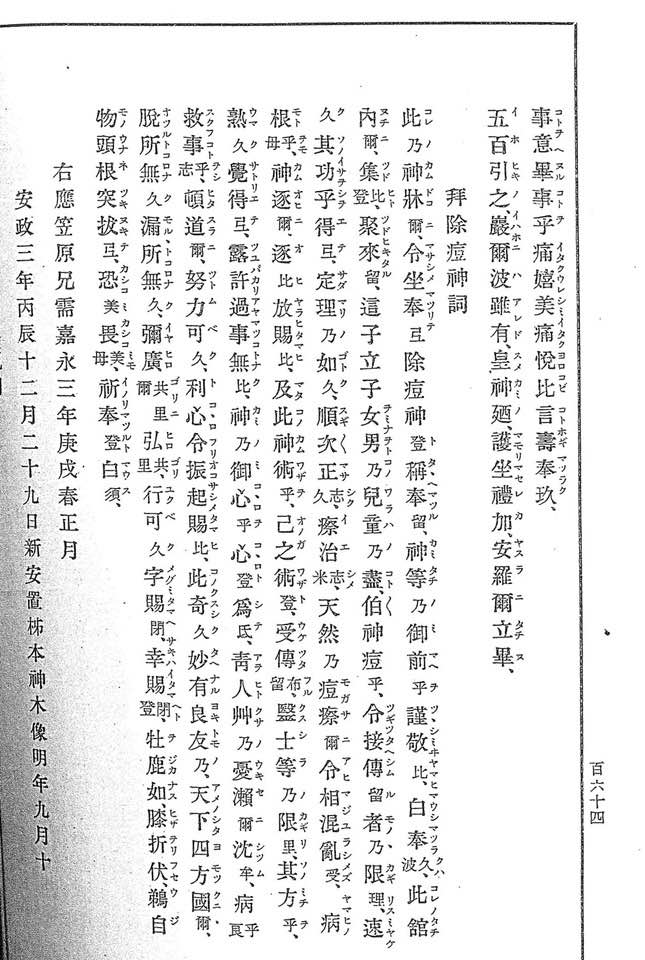 事意畢事乎痛嬉美痛悅比言壽奉玖、
五百引之、巖爾波雖有、皇神廼、護坐禮加、安羅爾立畢、
拜除痘神詞
此乃神牀爾、令坐奉弖除痘神登稱奉留、神等乃御前乎謹敬比、白奉久、此館波
內爾、集比、聚來留、這子立子女男乃兒童乃盡、伯神痘乎、令接傳留者乃、限理、速
久其功乎得弖、定理乃如久、順次正志久、療治志米、天然乃痘瘵爾令相混亂受、病
根乎母、神逐爾、逐比放賜比、及此神術乎、己之術登、受傳布留、醫士等乃限里、其方乎
熟久覺得弖、露許過事無比、神乃御心乎心登爲氐、靑人艸乃憂瀨爾沈牟、病乎
救事乎志、頓道爾、努力可久、利心令振起賜比、此奇久妙有良友乃、天下四方國爾、
脫所無久漏所無久、彌廣爾共里弘里共、行可久字賜閉、幸賜閉登、牡鹿如、膝折伏、鵜自
物頭根突拔弖、恐美畏美母、祈奉登白須、
右應笠原兄需嘉永三年庚戌春正月
安政三年丙辰十二月二十九日新安置柹本神木像明年九月十
百六十四